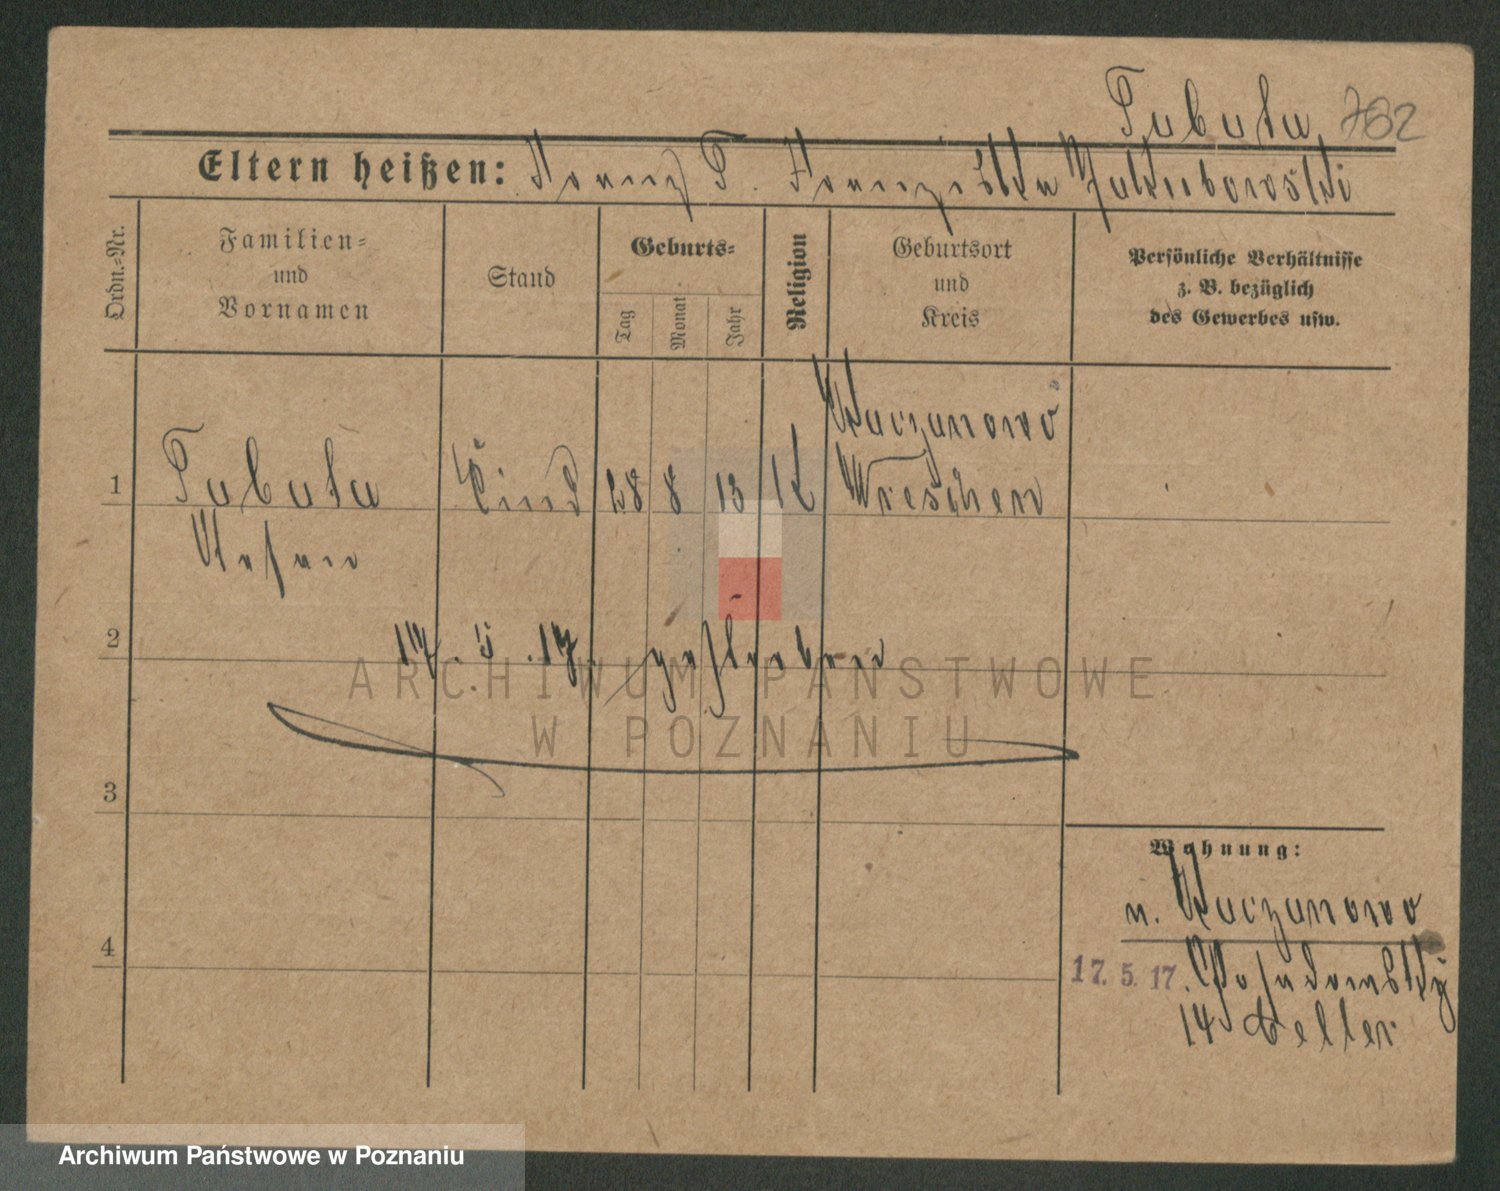 Tabuła 702
Eltern heißen: Franz T. Franziska Jakubowski
Ordn.-Nr.
Familien-
und
Vornamen
Stand
Geburts-
Tag
Monat
Jahr
Religion
Geburtsort
und
Kreis
Persönliche Verhältnisse
z. B. bezüglich
des Gewerbes usw.
Kaczanowo
1 Tabuła Kind 28 8 13 K Wreschen
2 17. 5. 17. gestorben
ARCHIWUM PAŃSTWOWE
W POZNANIU
3
Wohnung:
n. Kaczanowo
4
17. 5. 17.
14
Archiwum Państwowe w Poznaniu